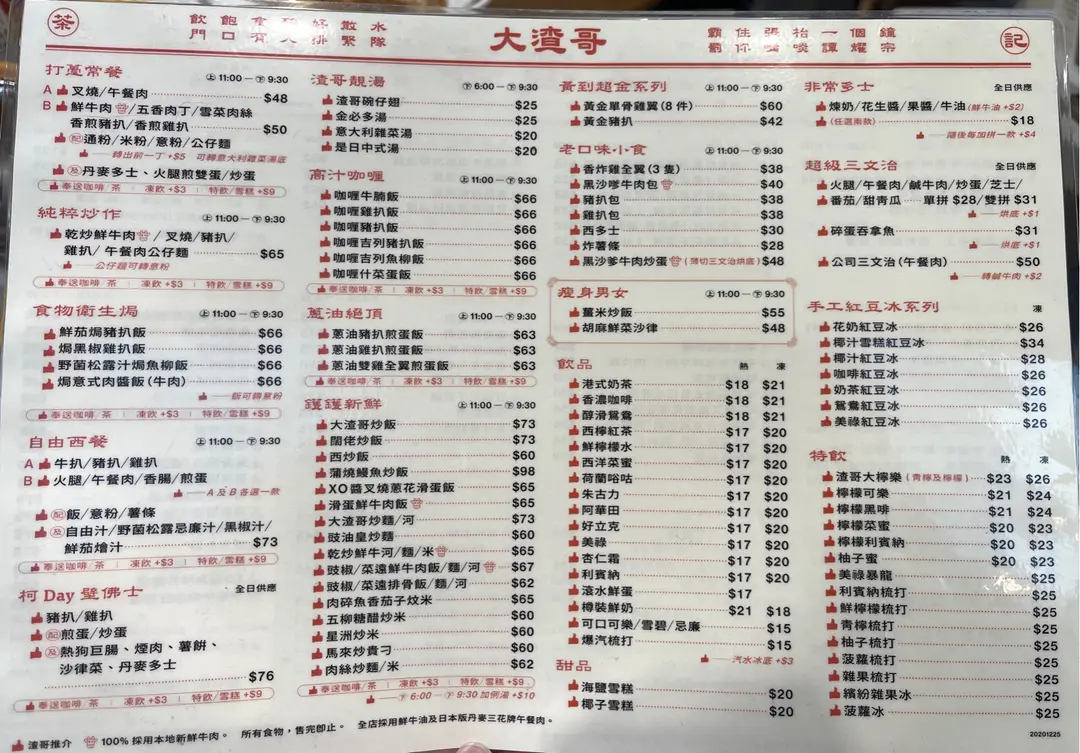 茶
飲飽食好散水
門口有排緊隊
大渣哥
霸住張枱一個鐘
劉你嘴啖譚耀宗
記
打躉常餐 上11:00－下9:30
A 叉燒/午餐肉 $48
B 鮮牛肉/五香肉丁/雪菜肉絲
香煎豬扒/香煎雞扒 $50
配 通粉/米粉/意粉/公仔麵
轉出前一丁+$5 可轉意大利雜菜湯底
及 丹麥多士、火腿煎雙蛋/炒蛋
奉送咖啡/茶 | 凍飲+$3 | 特飲/雪糕+$9
純粹炒作 上11:00－下9:30
乾炒鮮牛肉/叉燒/豬扒/
雞扒/午餐肉公仔麵 $65
公仔麵可轉意粉
奉送咖啡/茶 | 凍飲+$3 | 特飲/雪糕+$9
食物衛生焗 上11:00－下9:30
鮮茄焗豬扒飯 $66
焗黑椒雞扒飯 $66
野菌松露汁焗魚柳飯 $66
焗意式肉醬飯(牛肉) $66
飯可轉意粉
奉送咖啡/茶 | 凍飲+$3 | 特飲/雪糕+$9
自由西餐 上11:00－下9:30
A 牛扒/豬扒/雞扒
B 火腿/午餐肉/香腸/煎蛋
A及B各選一款
配 飯/意粉/薯條
及 自由汁/野菌松露忌廉汁/黑椒汁/
鮮茄燴汁 $73
奉送咖啡/茶 | 凍飲+$3 | 特飲/雪糕+$9
柯Day璧佛士 全日供應
豬扒/雞扒
配 煎蛋/炒蛋
及 熱狗巨腸、煙肉、薯餅、
沙律菜、丹麥多士
$76
奉送咖啡/茶 | 凍飲+$3 | 特飲/雪糕+$9
渣哥靚湯 下6:00－下9:30
渣哥碗仔翅 $25
金必多湯 $25
意大利雜菜湯 $20
是日中式湯 $20
高汁咖喱 上11:00－下9:30
咖喱牛腩飯 $66
咖喱雞扒飯 $66
咖喱豬扒飯 $66
咖喱吉列豬扒飯 $66
咖喱吉列魚柳飯 $66
咖喱什菜蛋飯 $66
奉送咖啡/茶 | 凍飲+$3 | 特飲/雪糕+$9
蔥油絕頂 上11:00－下9:30
蔥油豬扒煎蛋飯 $63
蔥油雞扒煎蛋飯 $63
蔥油雙雞全翼煎蛋飯 $63
奉送咖啡/茶 | 凍飲+$3 | 特飲/雪糕+$9
鑊鑊新鮮 上11:00－下9:30
大渣哥炒飯 $73
闊佬炒飯 $73
西炒飯 $60
蒲燒鰻魚炒飯 $98
XO醬叉燒蔥花滑蛋飯 $65
滑蛋鮮牛肉飯 $65
大渣哥炒麵/河 $73
豉油皇炒麵 $60
乾炒鮮牛河/麵/米 $65
豉椒/菜遠鮮牛肉飯/麵/河 $67
豉椒/菜遠排骨飯/麵/河 $62
肉碎魚香茄子炆米 $65
五柳糖醋炒米 $60
星洲炒米 $60
馬來炒貴刁 $60
肉絲炒麵/米 $62
奉送咖啡/茶 | 凍飲+$3 | 特飲/雪糕+$9
下6:00－下9:30加例湯+$10
黃到超金系列 上11:00－下9:30
黃金單骨雞翼(8件) $60
黃金豬扒 $42
老口味小食 上11:00－下9:30
香炸雞全翼(3隻) $38
黑沙爹牛肉包 $40
豬扒包 $38
雞扒包 $38
西多士 $30
炸薯條 $28
黑沙爹牛肉炒蛋(薄切三文治烘底) $48
瘦身男女 上11:00－下9:30
薑米炒飯 $55
胡麻鮮菜沙律 $48
飲品 熱 凍
港式奶茶 $18 $21
香濃咖啡 $18 $21
醇滑鴛鴦 $18 $21
西檸紅茶 $17 $20
鮮檸檬水 $17 $20
西洋菜蜜 $17 $20
荷蘭哈咕 $17 $20
朱古力 $17 $20
阿華田 $17 $20
好立克 $17 $20
美祿 $17 $20
杏仁霜 $17 $20
利賓納 $17 $20
滾水鮮蛋 $17
樽裝鮮奶 $21 $18
可口可樂/雪碧/忌廉 $15
爆汽梳打 $15
汽水冰底+$3
甜品
海鹽雪糕 $20
椰子雪糕 $20
非常多士 全日供應
煉奶/花生醬/果醬/牛油(鮮牛油+$2)
(任選兩款) $18
隨後每加拼一款+$4
超級三文治 全日供應
火腿/午餐肉/鹹牛肉/炒蛋/芝士/
番茄/甜青瓜 單拼$28/雙拼$31
烘底+$1
碎蛋吞拿魚 $31
烘底+$1
公司三文治(午餐肉) $50
轉鹹牛肉+$2
手工紅豆冰系列 凍
花奶紅豆冰 $26
椰汁雪糕紅豆冰 $34
椰汁紅豆冰 $28
咖啡紅豆冰 $26
奶茶紅豆冰 $26
鴛鴦紅豆冰 $26
美祿紅豆冰 $26
特飲 熱 凍
渣哥大檸樂(青檸及檸檬) $23 $26
檸檬可樂 $21 $24
檸檬黑啡 $21 $24
檸檬菜蜜 $20 $23
檸檬利賓納 $20 $23
柚子蜜 $20 $23
美祿暴龍 $25
利賓納梳打 $25
鮮檸檬梳打 $25
青檸梳打 $25
柚子梳打 $25
菠蘿梳打 $25
雜果梳打 $25
繽紛雜果冰 $25
菠蘿冰 $25
渣哥推介 100%採用本地新鮮牛肉。 所有食物，售完即止。 全店採用鮮牛油及日本版丹麥三花牌午餐肉。
20201225